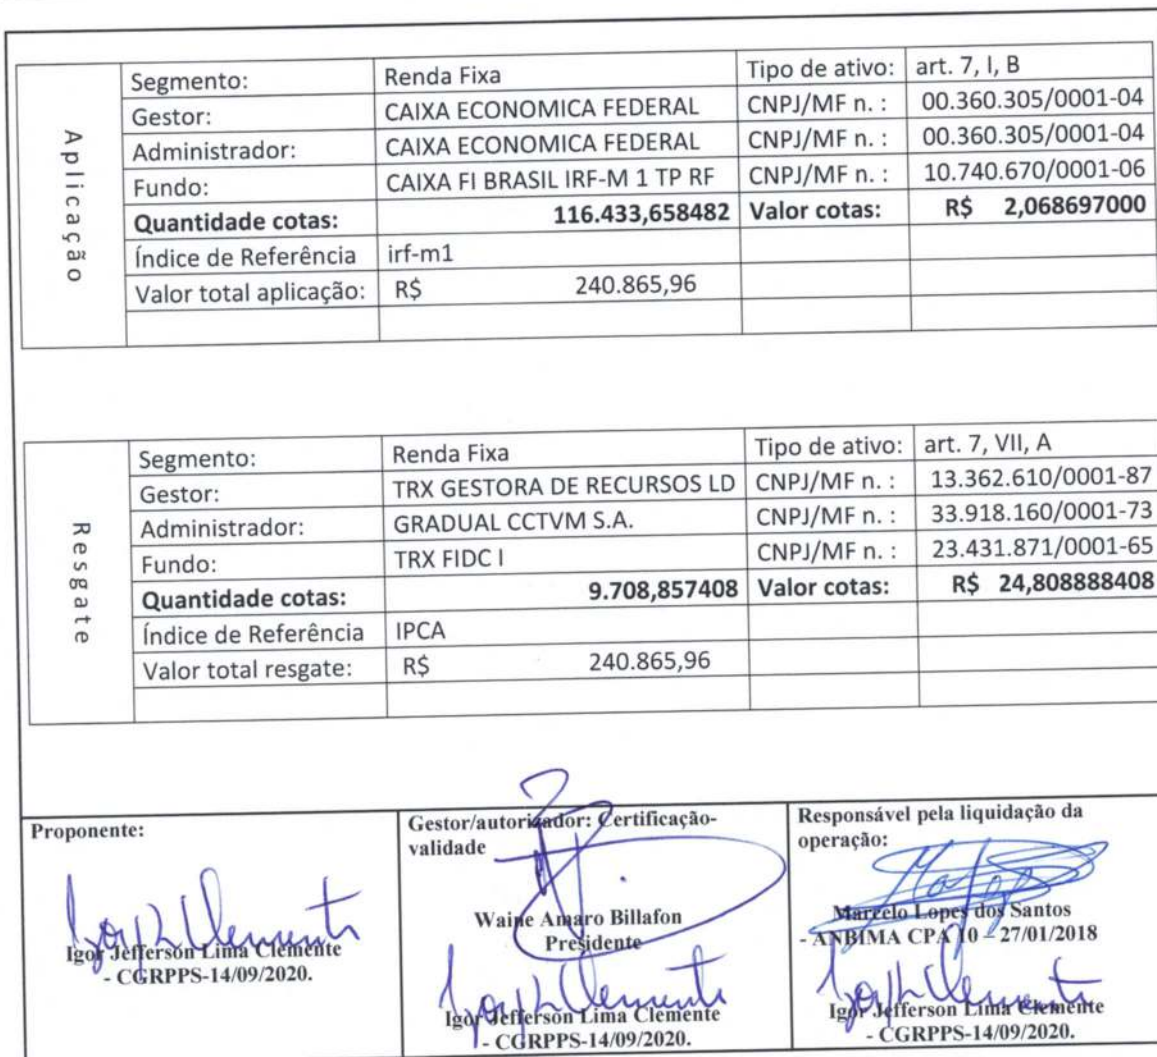 Aplicação
Segmento: Renda Fixa Tipo de ativo: art. 7, I, B
Gestor: CAIXA ECONOMICA FEDERAL CNPJ/MF n. : 00.360.305/0001-04
Administrador: CAIXA ECONOMICA FEDERAL CNPJ/MF n. : 00.360.305/0001-04
Fundo: CAIXA FI BRASIL IRF-M 1 TP RF CNPJ/MF n. : 10.740.670/0001-06
Quantidade cotas: 116.433,658482 Valor cotas: R$ 2,068697000
Índice de Referência irf-m1
Valor total aplicação: R$ 240.865,96
Resgate
Segmento: Renda Fixa Tipo de ativo: art. 7, VII, A
Gestor: TRX GESTORA DE RECURSOS LD CNPJ/MF n. : 13.362.610/0001-87
Administrador: GRADUAL CCTVM S.A. CNPJ/MF n. : 33.918.160/0001-73
Fundo: TRX FIDC I CNPJ/MF n. : 23.431.871/0001-65
Quantidade cotas: 9.708,857408 Valor cotas: R$ 24,808888408
Índice de Referência IPCA
Valor total resgate: R$ 240.865,96
Proponente:
Igor Jefferson Lima Clemente
- CGRPPS-14/09/2020.
Gestor/autorizador: Certificação-
validade
Waine Amaro Billafon
Presidente
Igor Jefferson Lima Clemente
- CGRPPS-14/09/2020.
Responsável pela liquidação da
operação:
Marcelo Lopes dos Santos
- ANBIMA CPA 10 – 27/01/2018
Igor Jefferson Lima Clemente
- CGRPPS-14/09/2020.